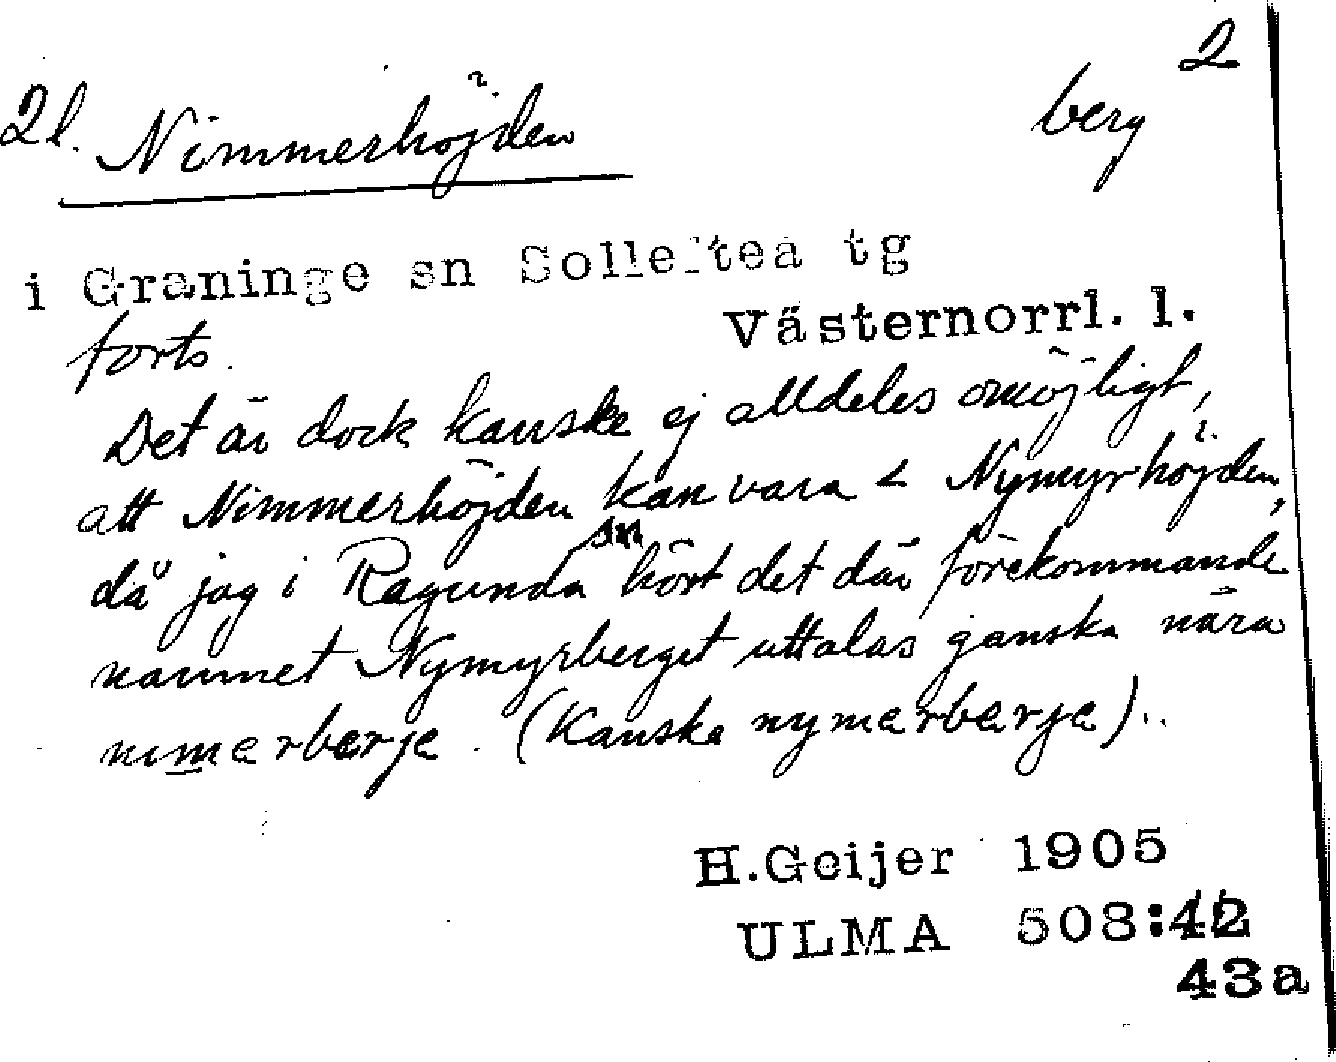 2
2l. Nimmerhöjden berg
i Graninge sn Sollefteå tg
Västernorrl. l.
forts.
Det är dock kanske ej alldeles omöjligt,
att Nimmerhöjden kan vara < Nymyrhöjden,
då jag i Ragunda sn hört det där förekommande
namnet Nymyrberget uttalas ganska nära
nımerberje. (Kanske nymerberje)..
H.Geijer 1905
ULMA 508:42
43a